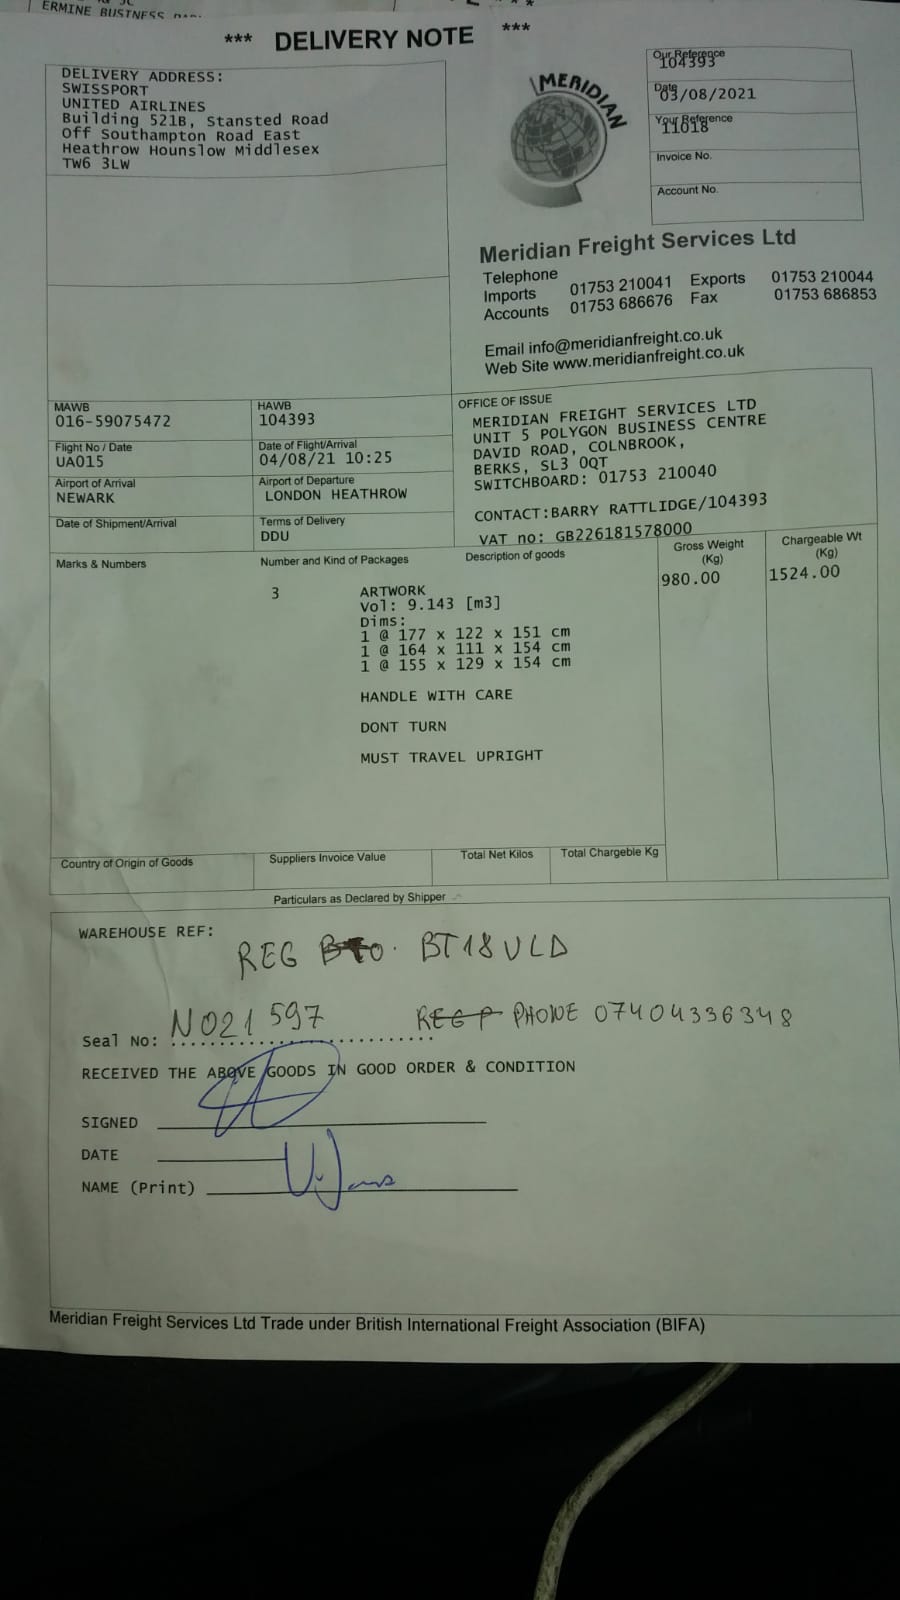 ERMINE BUSINESS
*** DELIVERY NOTE ***
DELIVERY ADDRESS:
SWISSPORT
UNITED AIRLINES
Building 521B, Stansted Road
Off Southampton Road East
Heathrow Hounslow Middlesex
TW6 3LW
MERIDIAN
Our Reference
104393
Date
03/08/2021
Your Reference
11018
Invoice No.
Account No.
Meridian Freight Services Ltd
Telephone
Imports 01753 210041 Exports 01753 210044
Accounts 01753 686676 Fax 01753 686853
Email info@meridianfreight.co.uk
Web Site www.meridianfreight.co.uk
MAWB
016-59075472
HAWB
104393
Flight No / Date
UA015
Date of Flight/Arrival
04/08/21 10:25
Airport of Arrival
NEWARK
Airport of Departure
LONDON HEATHROW
Date of Shipment/Arrival
Terms of Delivery
DDU
OFFICE OF ISSUE
MERIDIAN FREIGHT SERVICES LTD
UNIT 5 POLYGON BUSINESS CENTRE
DAVID ROAD, COLNBROOK,
BERKS, SL3 0QT
SWITCHBOARD: 01753 210040
CONTACT:BARRY RATTLIDGE/104393
VAT no: GB226181578000
Marks & Numbers
Number and Kind of Packages
Description of goods
Gross Weight
(Kg)
Chargeable Wt
(Kg)
3 ARTWORK 980.00 1524.00
Vol: 9.143 [m3]
Dims:
1 @ 177 x 122 x 151 cm
1 @ 164 x 111 x 154 cm
1 @ 155 x 129 x 154 cm
HANDLE WITH CARE
DONT TURN
MUST TRAVEL UPRIGHT
Country of Origin of Goods
Suppliers Invoice Value
Total Net Kilos
Total Chargeble Kg
Particulars as Declared by Shipper
WAREHOUSE REF:
REG BT18VLD
Seal No: N021597
PHONE 07404336348
RECEIVED THE ABOVE GOODS IN GOOD ORDER & CONDITION
SIGNED
DATE
NAME (Print)
Meridian Freight Services Ltd Trade under British International Freight Association (BIFA)